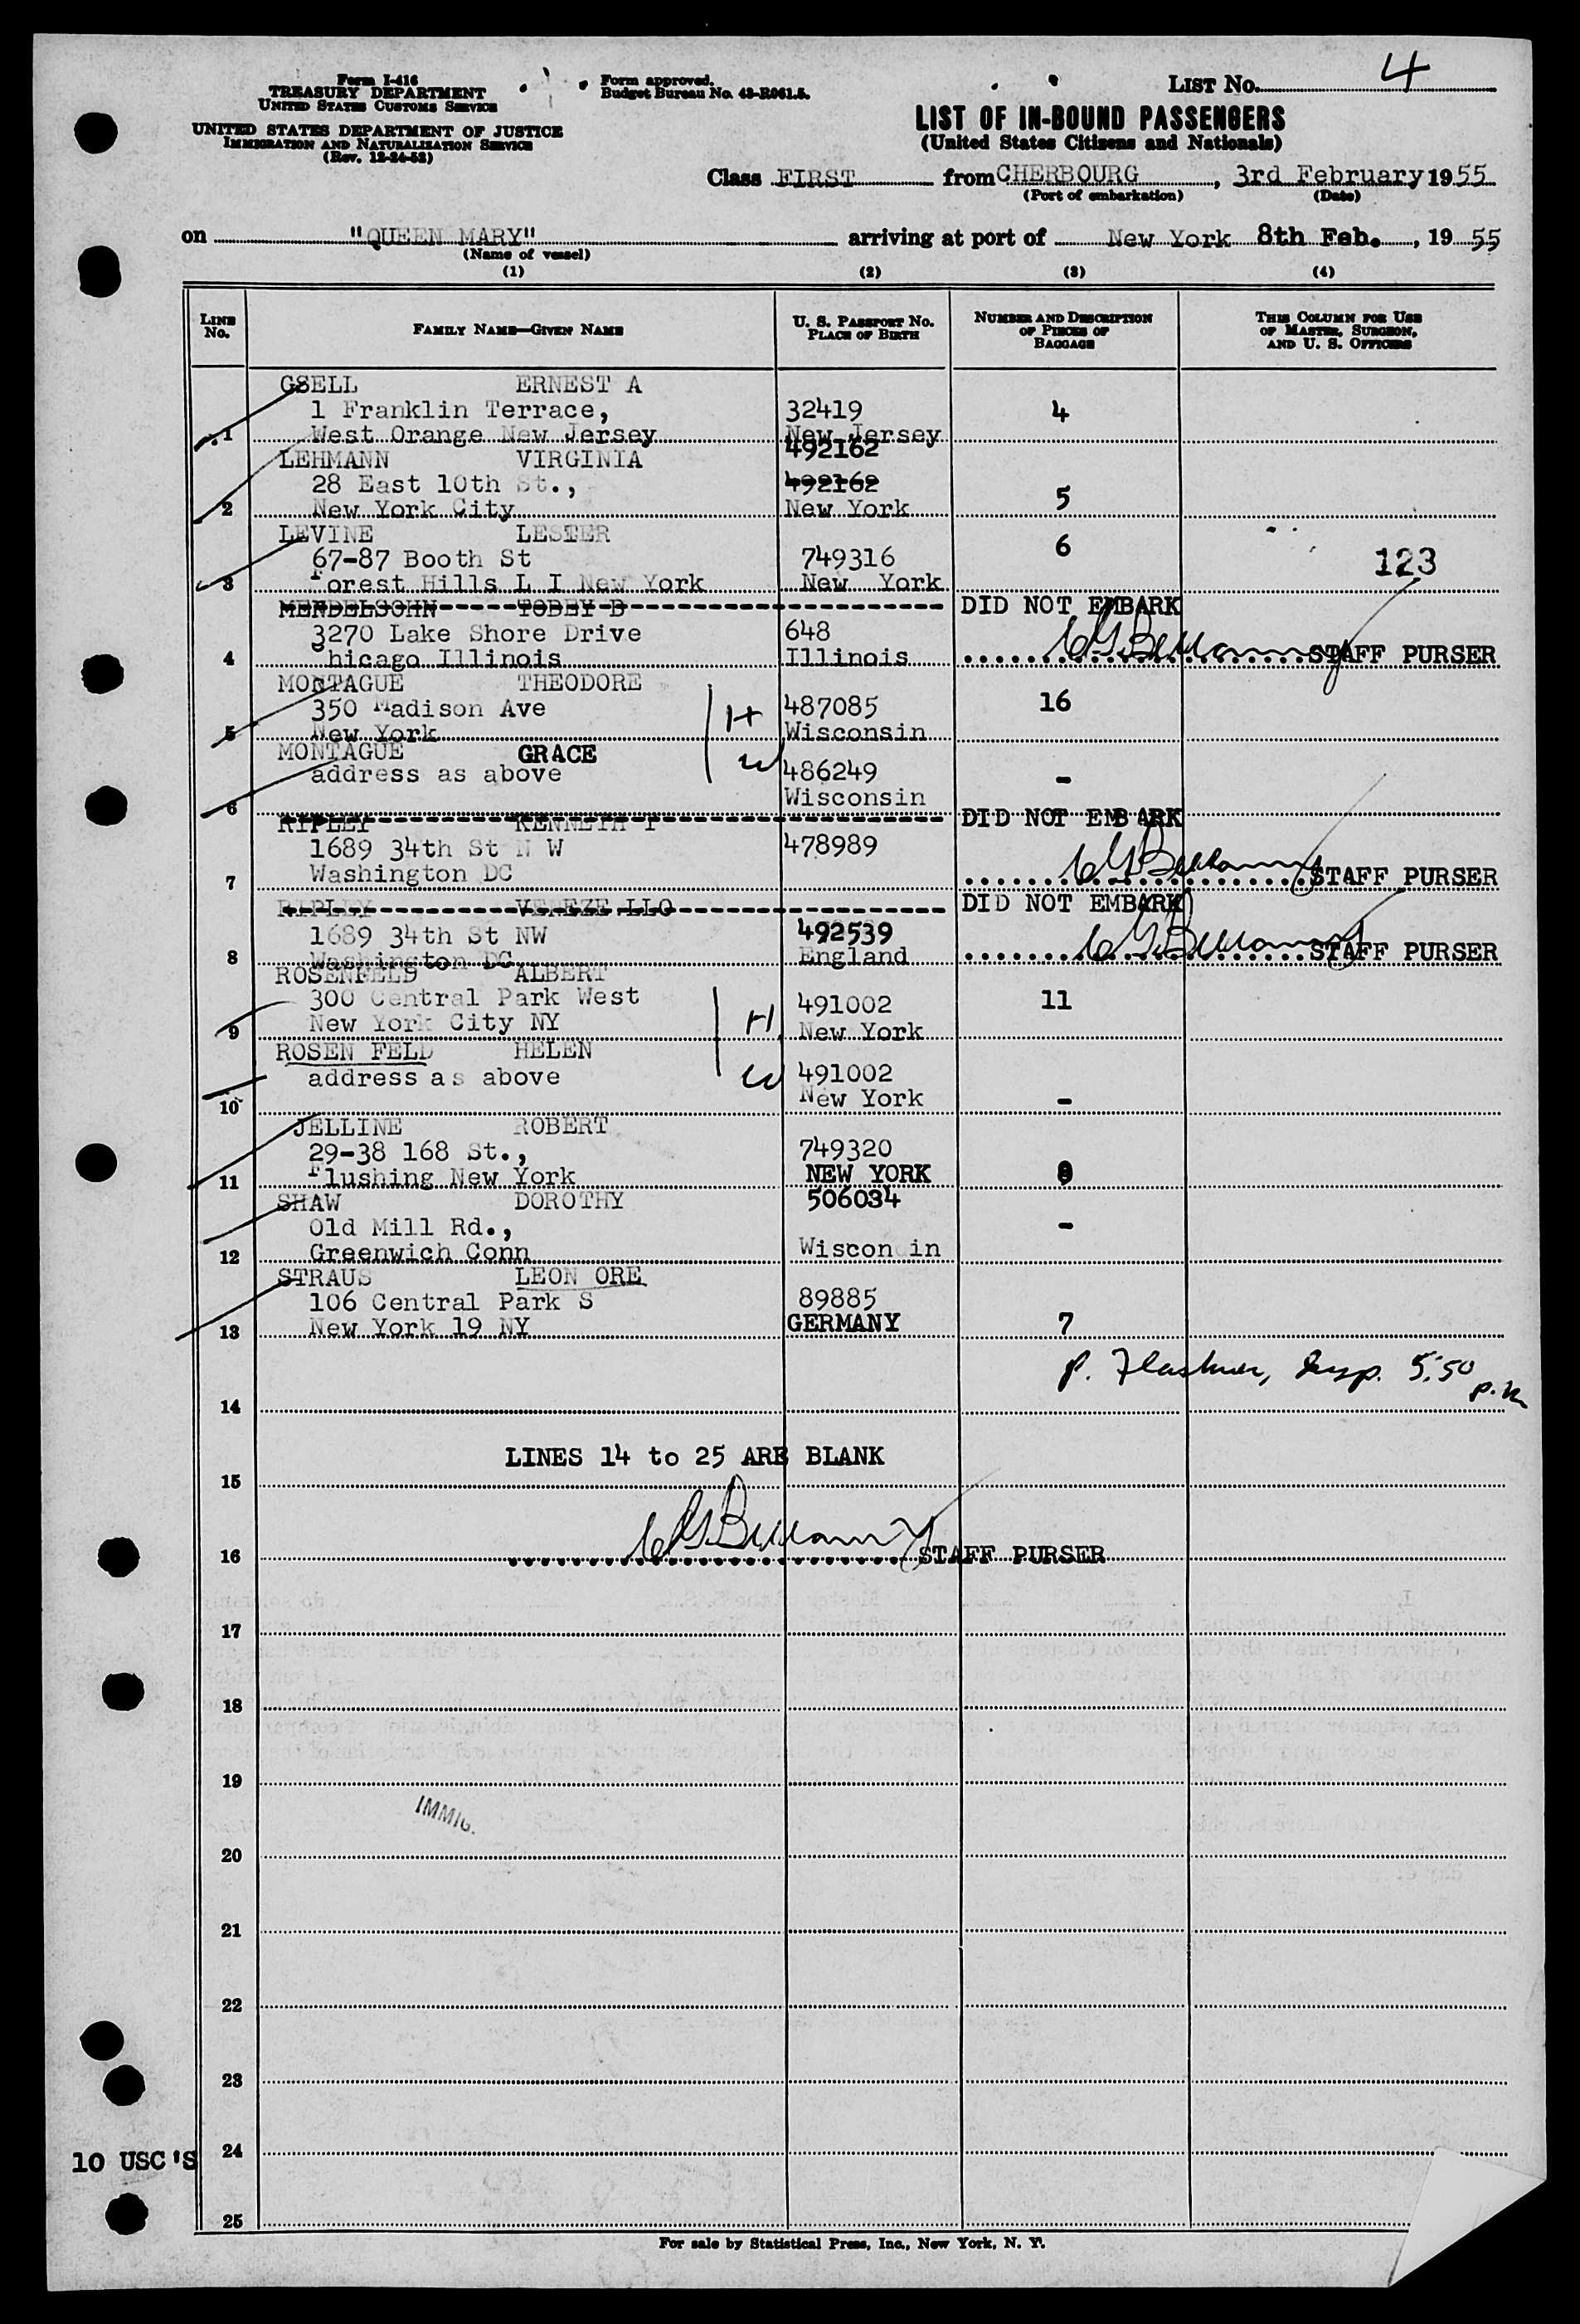 Form I-416
TREASURY DEPARTMENT
UNITED STATES CUSTOMS SERVICE
UNITED STATES DEPARTMENT OF JUSTICE
IMMIGRATION AND NATURALIZATION SERVICE
(Rev. 12-24-52)
Form approved.
Budget Bureau No. 43-R061.5.
LIST No. 4
LIST OF IN-BOUND PASSENGERS
(United States Citizens and Nationals)
Class FIRST from CHERBOURG, 3rd February 1955
(Port of embarkation) (Date)
on "QUEEN MARY" arriving at port of New York 8th Feb., 1955
(Name of vessel)
(1) (2) (3) (4)
LINE No. FAMILY NAME—GIVEN NAME U. S. PASSPORT No. PLACE OF BIRTH NUMBER AND DESCRIPTION OF PIECES OF BAGGAGE THIS COLUMN FOR USE OF MASTER, SURGEON, AND U. S. OFFICERS
GSELL ERNEST A
1 Franklin Terrace, 32419 4
1 West Orange New Jersey New Jersey
492162
LEHMANN VIRGINIA
28 East 10th St., 492162
2 New York City New York 5
LEVINE LESTER 6
67-87 Booth St 749316 123
3 Forest Hills L I New York New York
MENDELSOHN TOBEY B DID NOT EMBARK
3270 Lake Shore Drive 648
4 Chicago Illinois Illinois STAFF PURSER
MONTAGUE THEODORE 16
350 Madison Ave H 487085
5 New York Wisconsin
MONTAGUE GRACE
address as above W 486249 -
6 Wisconsin
RIPLEY KENNETH DID NOT EMBARK
1689 34th St N W 478989
7 Washington DC STAFF PURSER
RIPLEY DID NOT EMBARK
1689 34th St NW 492539
8 Washington DC England STAFF PURSER
ROSENFELD ALBERT
300 Central Park West 491002 11
9 New York City NY H New York
ROSEN FELD HELEN
address as above W 491002
10 New York -
JELLINE ROBERT
29-38 168 St., 749320
11 Flushing New York NEW YORK
SHAW DOROTHY 506034
Old Mill Rd., -
12 Greenwich Conn Wiscon in
STRAUS LEON ORE
106 Central Park S 89885
13 New York 19 NY GERMANY 7
Insp. 5:50 p.m
14
LINES 14 to 25 ARE BLANK
15
16 STAFF PURSER
17
18
19
IMMIG.
20
21
22
23
10 USC'S 24
25
For sale by Statistical Press, Inc., New York, N. Y.